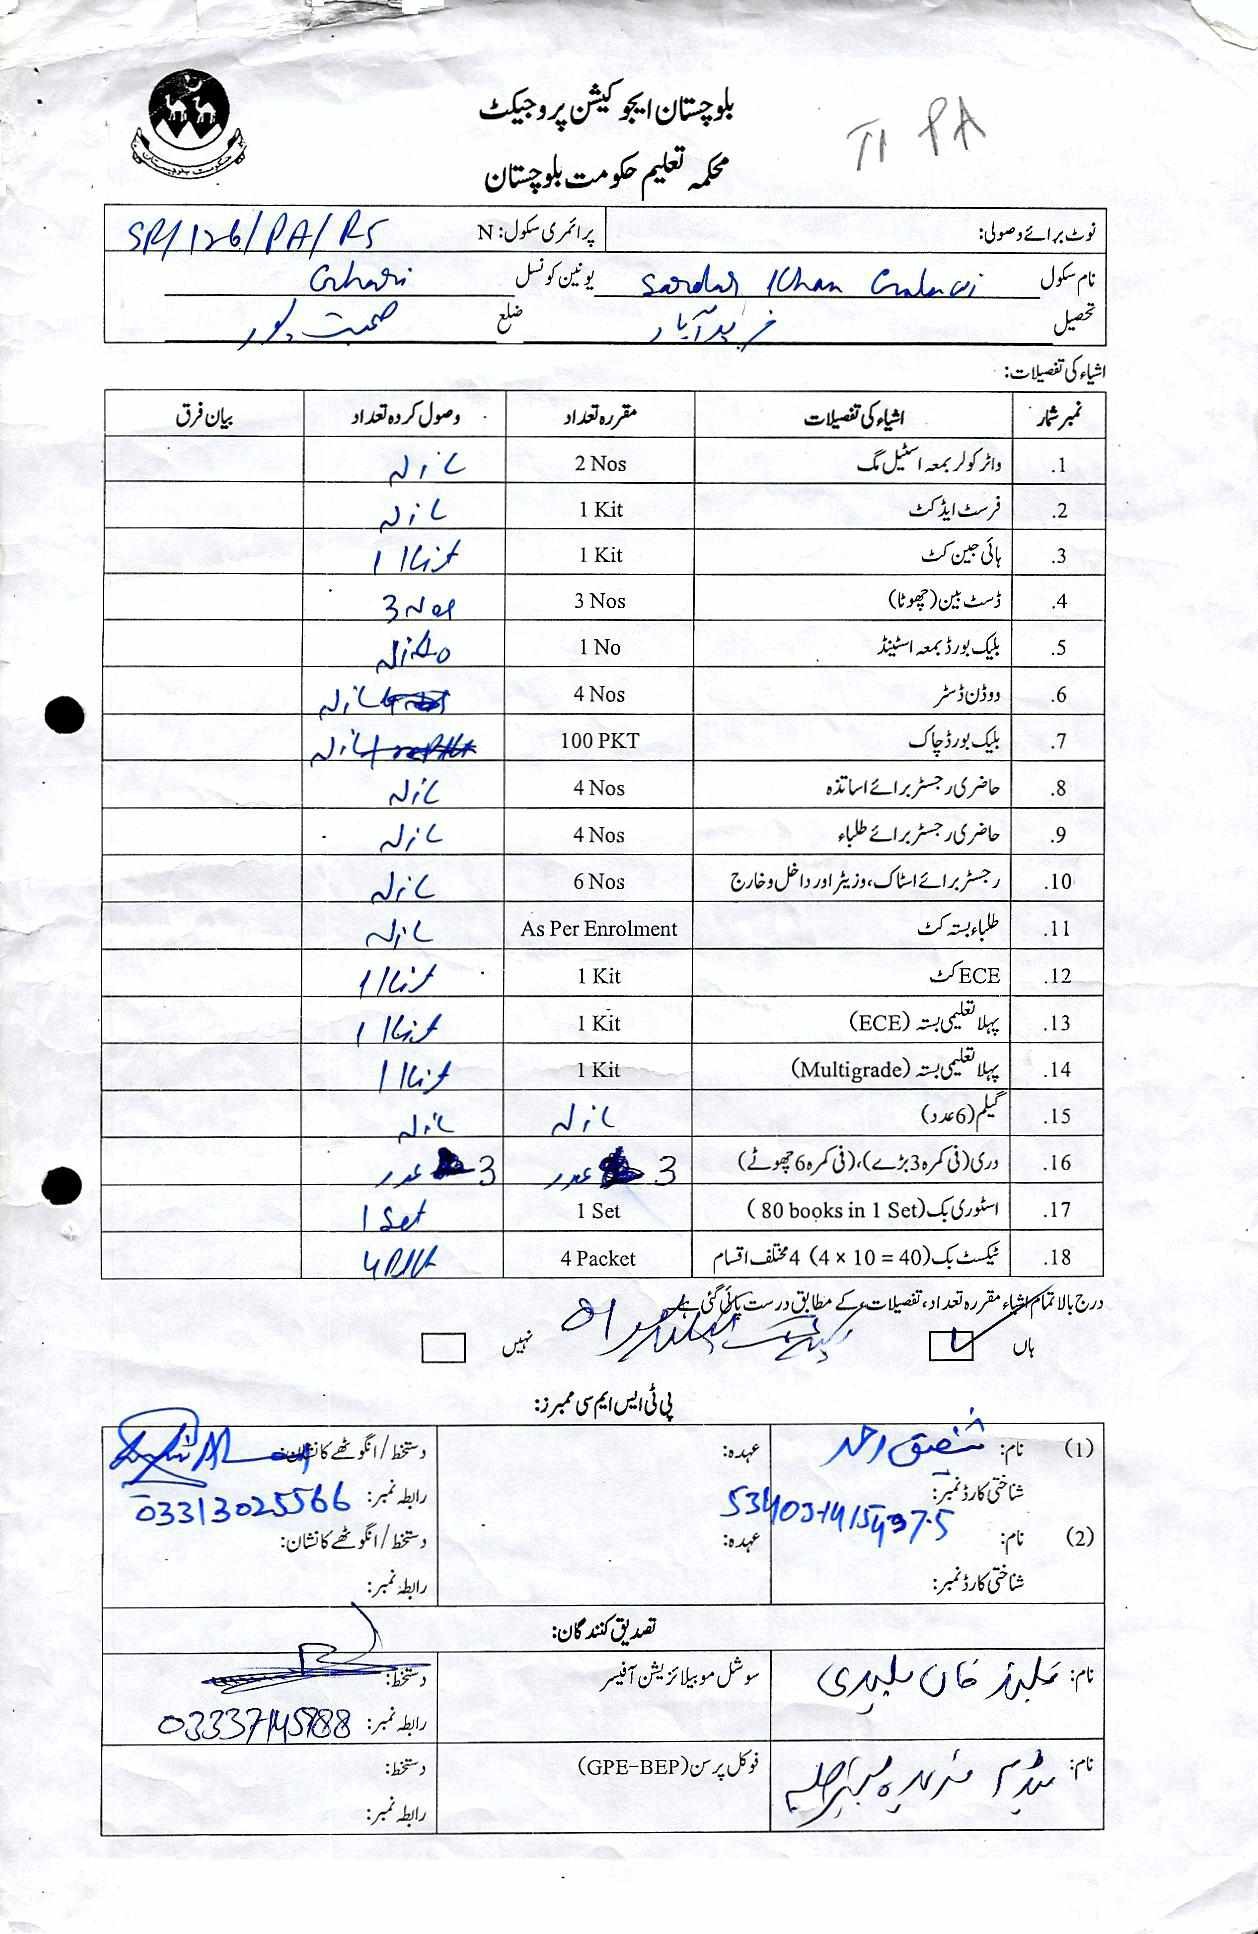 بلوچستان ایجوکیشن پروجیکٹ
محکمہ تعلیم حکومت بلوچستان
حکومت بلوچستان
TI PA
نوٹ برائے وصولی: پرائمری سکول: N SR/126/PA/RS
نام سکول Sardar Khan یونین کونسل
تحصیل فرید آباد ضلع صحبت پور
اشیاء کی تفصیلات:
نمبر شمار اشیاء کی تفصیلات مقررہ تعداد وصول کردہ تعداد بیان فرق
1. واٹر کولر بمعہ اسٹیل مگ 2 Nos Nil
2. فرسٹ ایڈ کٹ 1 Kit Nil
3. ہائی جین کٹ 1 Kit 1 Kit
4. ڈسٹ بین (چھوٹا) 3 Nos 3 Nos
5. بلیک بورڈ بمعہ اسٹینڈ 1 No
6. ووڈن ڈسٹر 4 Nos Nil
7. بلیک بورڈ چاک 100 PKT Nil
8. حاضری رجسٹر برائے اساتذہ 4 Nos Nil
9. حاضری رجسٹر برائے طلباء 4 Nos Nil
10. رجسٹر برائے اسٹاک، وزیٹر اور داخل و خارج 6 Nos Nil
11. طلباء بستہ کٹ As Per Enrolment Nil
12. ECE کٹ 1 Kit 1 Kit
13. پہلا تعلیمی بستہ (ECE) 1 Kit 1 Kit
14. پہلا تعلیمی بستہ (Multigrade) 1 Kit 1 Kit
15. گیلم (6 عدد) Nil Nil
16. دری (فی کمرہ 3 بڑے)، (فی کمرہ 6 چھوٹے) 3 عدد 3 عدد
17. اسٹوری بک (80 books in 1 Set) 1 Set 1 Set
18. ٹیکسٹ بک (4 × 10 = 40) 4 مختلف اقسام 4 Packet 4 Pkt
درج بالا تمام اشیاء مقررہ تعداد، تفصیلات کے مطابق درست پائی گئی ہے
ہاں نہیں
پی ٹی ایس ایم سی ممبرز:
(1) نام: شفیق احمد عہدہ: دستخط / انگوٹھے کا نشان:
شناختی کارڈ نمبر: رابطہ نمبر: 03313025566
(2) نام: عہدہ: دستخط / انگوٹھے کا نشان:
شناختی کارڈ نمبر: رابطہ نمبر:
تصدیق کنندگان:
نام: سوشل موبیلائزیشن آفیسر دستخط:
رابطہ نمبر:
نام: فوکل پرسن (GPE-BEP) دستخط:
رابطہ نمبر: